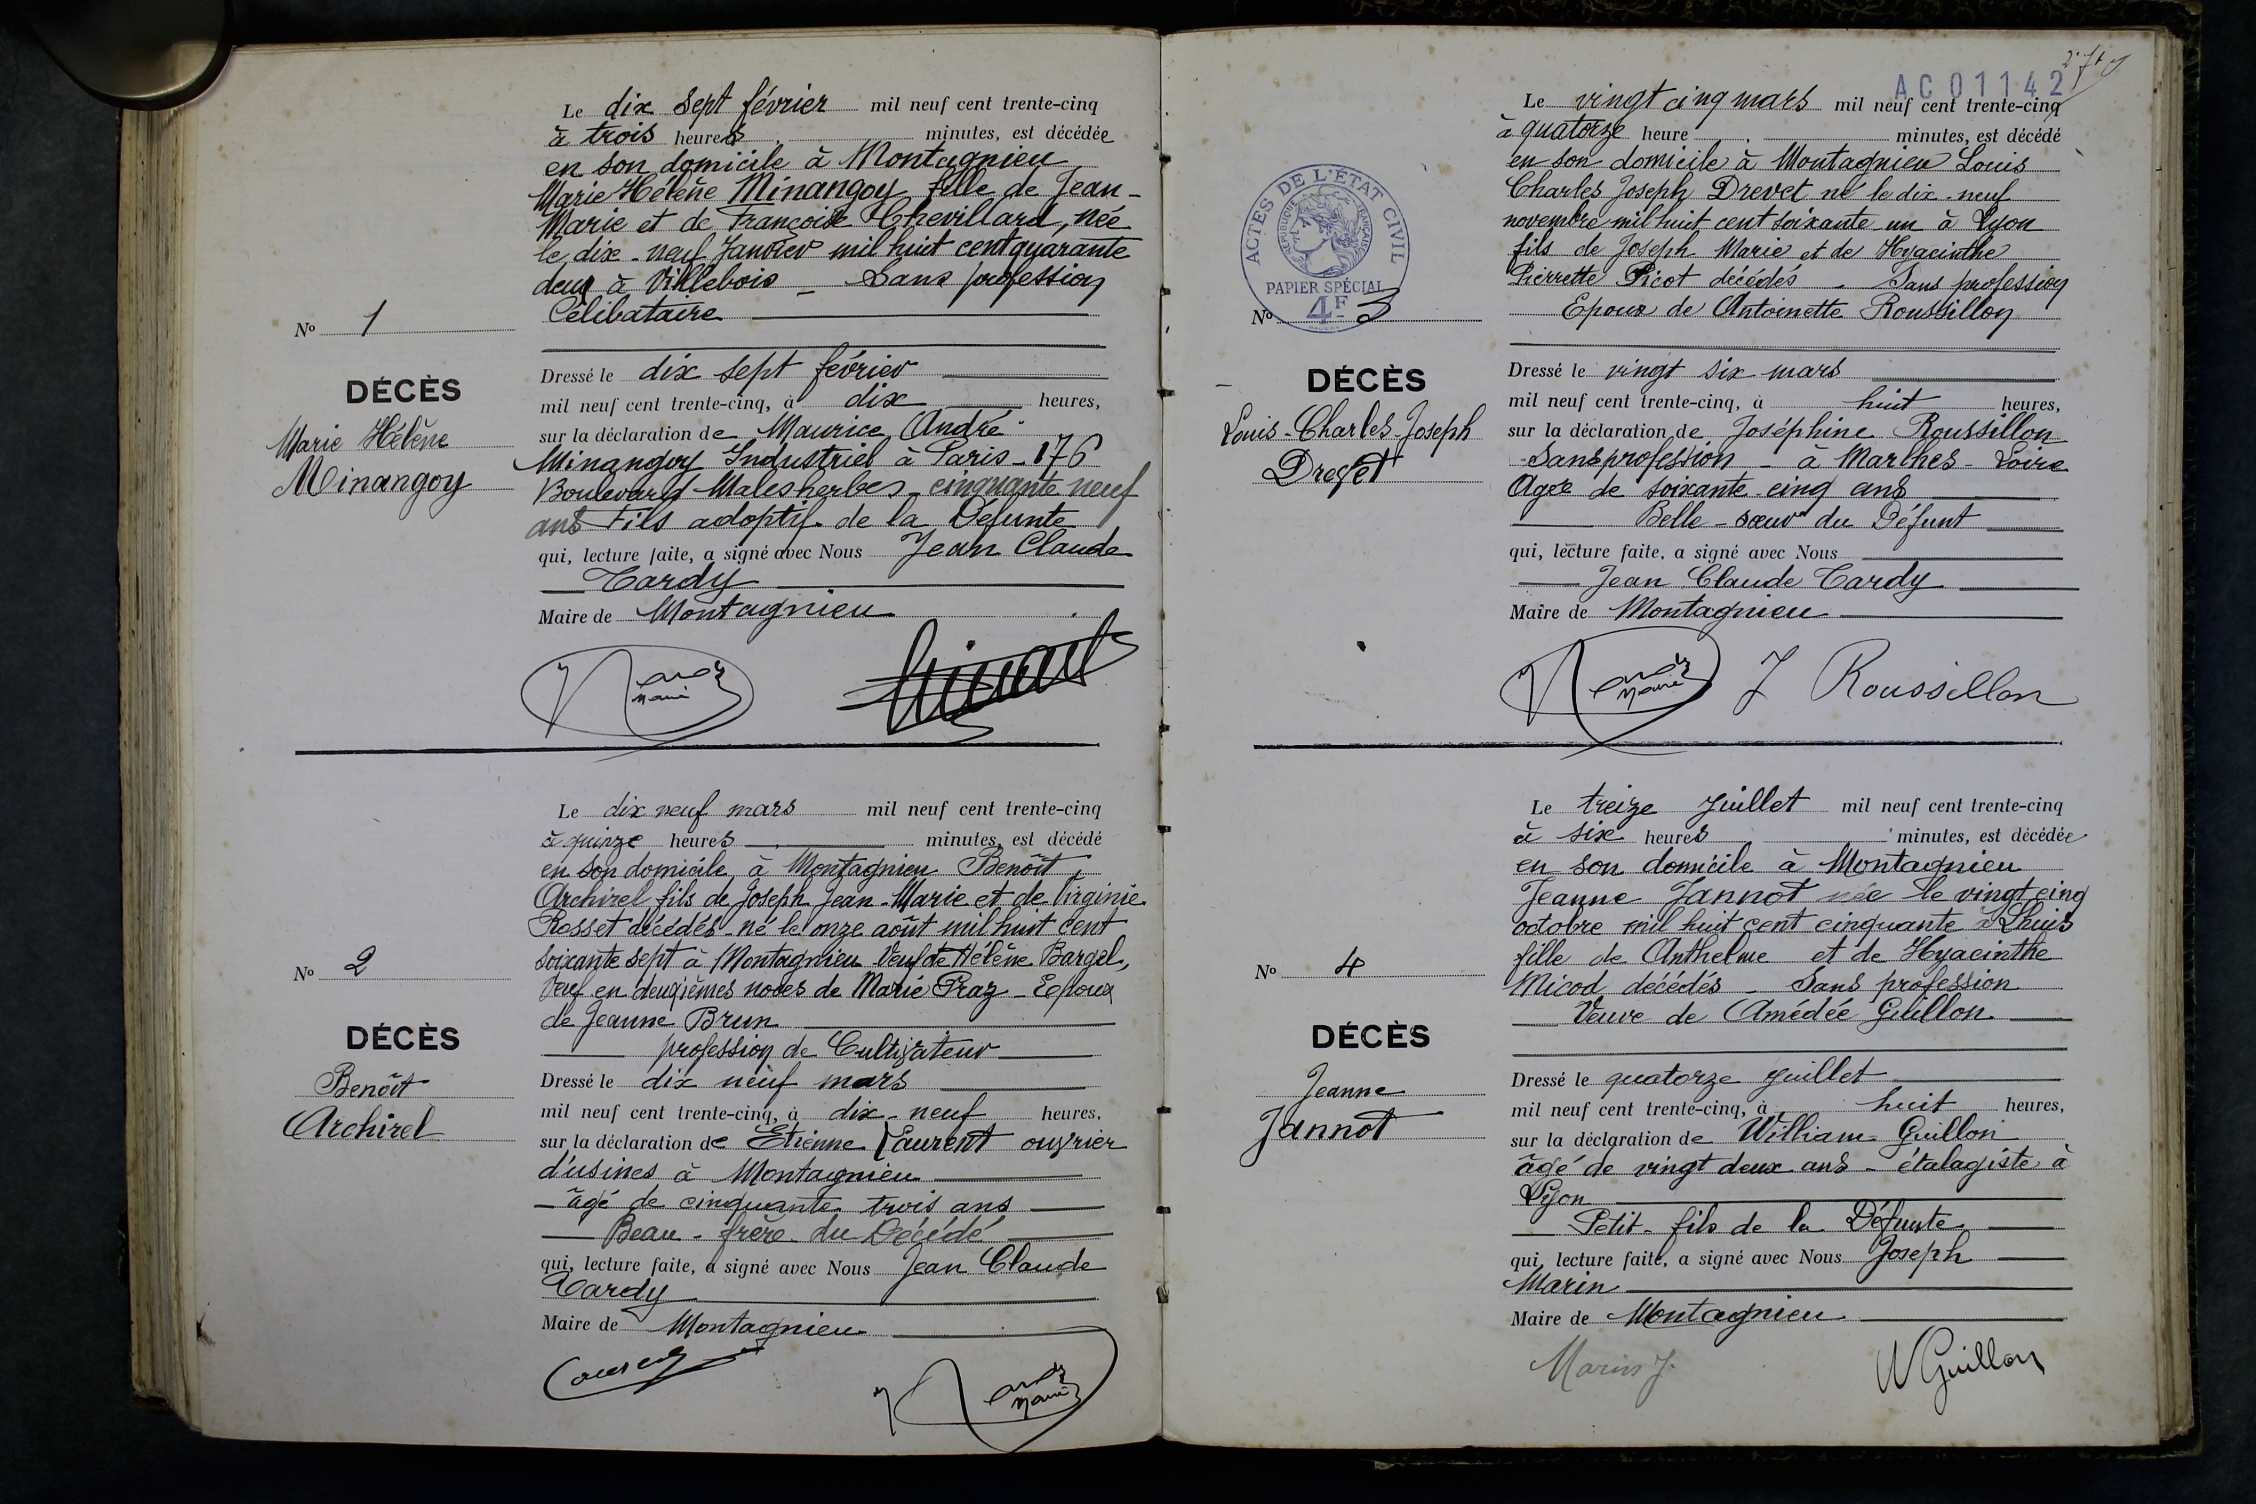 Le dix sept février mil neuf cent trente-cinq
à trois heures minutes, est décédée
en son domicile à Montagnieu
Marie Hélène Minangoy fille de Jean-
Marie et de Françoise Chevillard, née
le dix-neuf Janvier mil huit cent quarante
deux à Villebois _ Sans profession
Célibataire
No 1
DÉCÈS
Marie Hélène
Minangoy
Dressé le dix sept février
mil neuf cent trente-cinq, à dix heures,
sur la déclaration de Maurice André
Minangoy Industriel à Paris-176
Boulevard Malesherbes cinquante neuf
ans Fils adoptif de la Défunte
qui, lecture faite, a signé avec Nous Jean Claude
Tardy
Maire de Montagnieu
Le dix neuf mars mil neuf cent trente-cinq
à quinze heures minutes, est décédé
en son domicile à Montagnieu Benoît
Archirel fils de Joseph Jean-Marie et de Virginie
Rosset décédés - né le onze août mil huit cent
soixante sept à Montagnieu Veuf de Hélène Bargel,
Veuf en deuxièmes noces de Marie Praz - Epoux
de Jeanne Brun
profession de Cultivateur
No 2
DÉCÈS
Benoît
Archirel
Dressé le dix neuf mars
mil neuf cent trente-cinq, à dix-neuf heures,
sur la déclaration de Etienne Laurent ouvrier
d'usines à Montagnieu
âgé de cinquante trois ans
Beau-frère du Décédé
qui, lecture faite, a signé avec Nous Jean Claude
Tardy
Maire de Montagnieu
AC01142
Le vingt cinq mars mil neuf cent trente-cinq
à quatorze heure minutes, est décédé
en son domicile à Montagnieu Louis
Charles Joseph Drevet né le dix-neuf
novembre mil huit cent soixante un à Lyon
fils de Joseph Marie et de Hyacinthe
Pierrette Picot décédés - Sans profession
Epoux de Antoinette Roussillon
ACTES DE L'ÉTAT CIVIL
RÉPUBLIQUE FRANÇAISE
PAPIER SPÉCIAL
4F
No 3
DÉCÈS
Louis-Charles-Joseph
Drevet
Dressé le vingt six mars
mil neuf cent trente-cinq, à huit heures,
sur la déclaration de Joséphine Roussillon
-Sans profession - à Marlhes - Loire
Agée de soixante cinq ans
Belle-sœur du Défunt
qui, lecture faite, a signé avec Nous
Jean Claude Tardy
Maire de Montagnieu
J Roussillon
Le treize Juillet mil neuf cent trente-cinq
à six heures minutes, est décédée
en son domicile à Montagnieu
Jeanne Jannot née le vingt cinq
octobre mil huit cent cinquante à Lhuis
fille de Anthelme et de Hyacinthe
Micod décédés - Sans profession
Veuve de Amédée Guillon
No 4
DÉCÈS
Jeanne
Jannot
Dressé le quatorze Juillet
mil neuf cent trente-cinq, à huit heures,
sur la déclaration de William Guillon
âgé de vingt deux ans - étalagiste à
Lyon
Petit-fils de la Défunte
qui, lecture faite, a signé avec Nous Joseph
Marin
Maire de Montagnieu
Marin J.
W Guillon